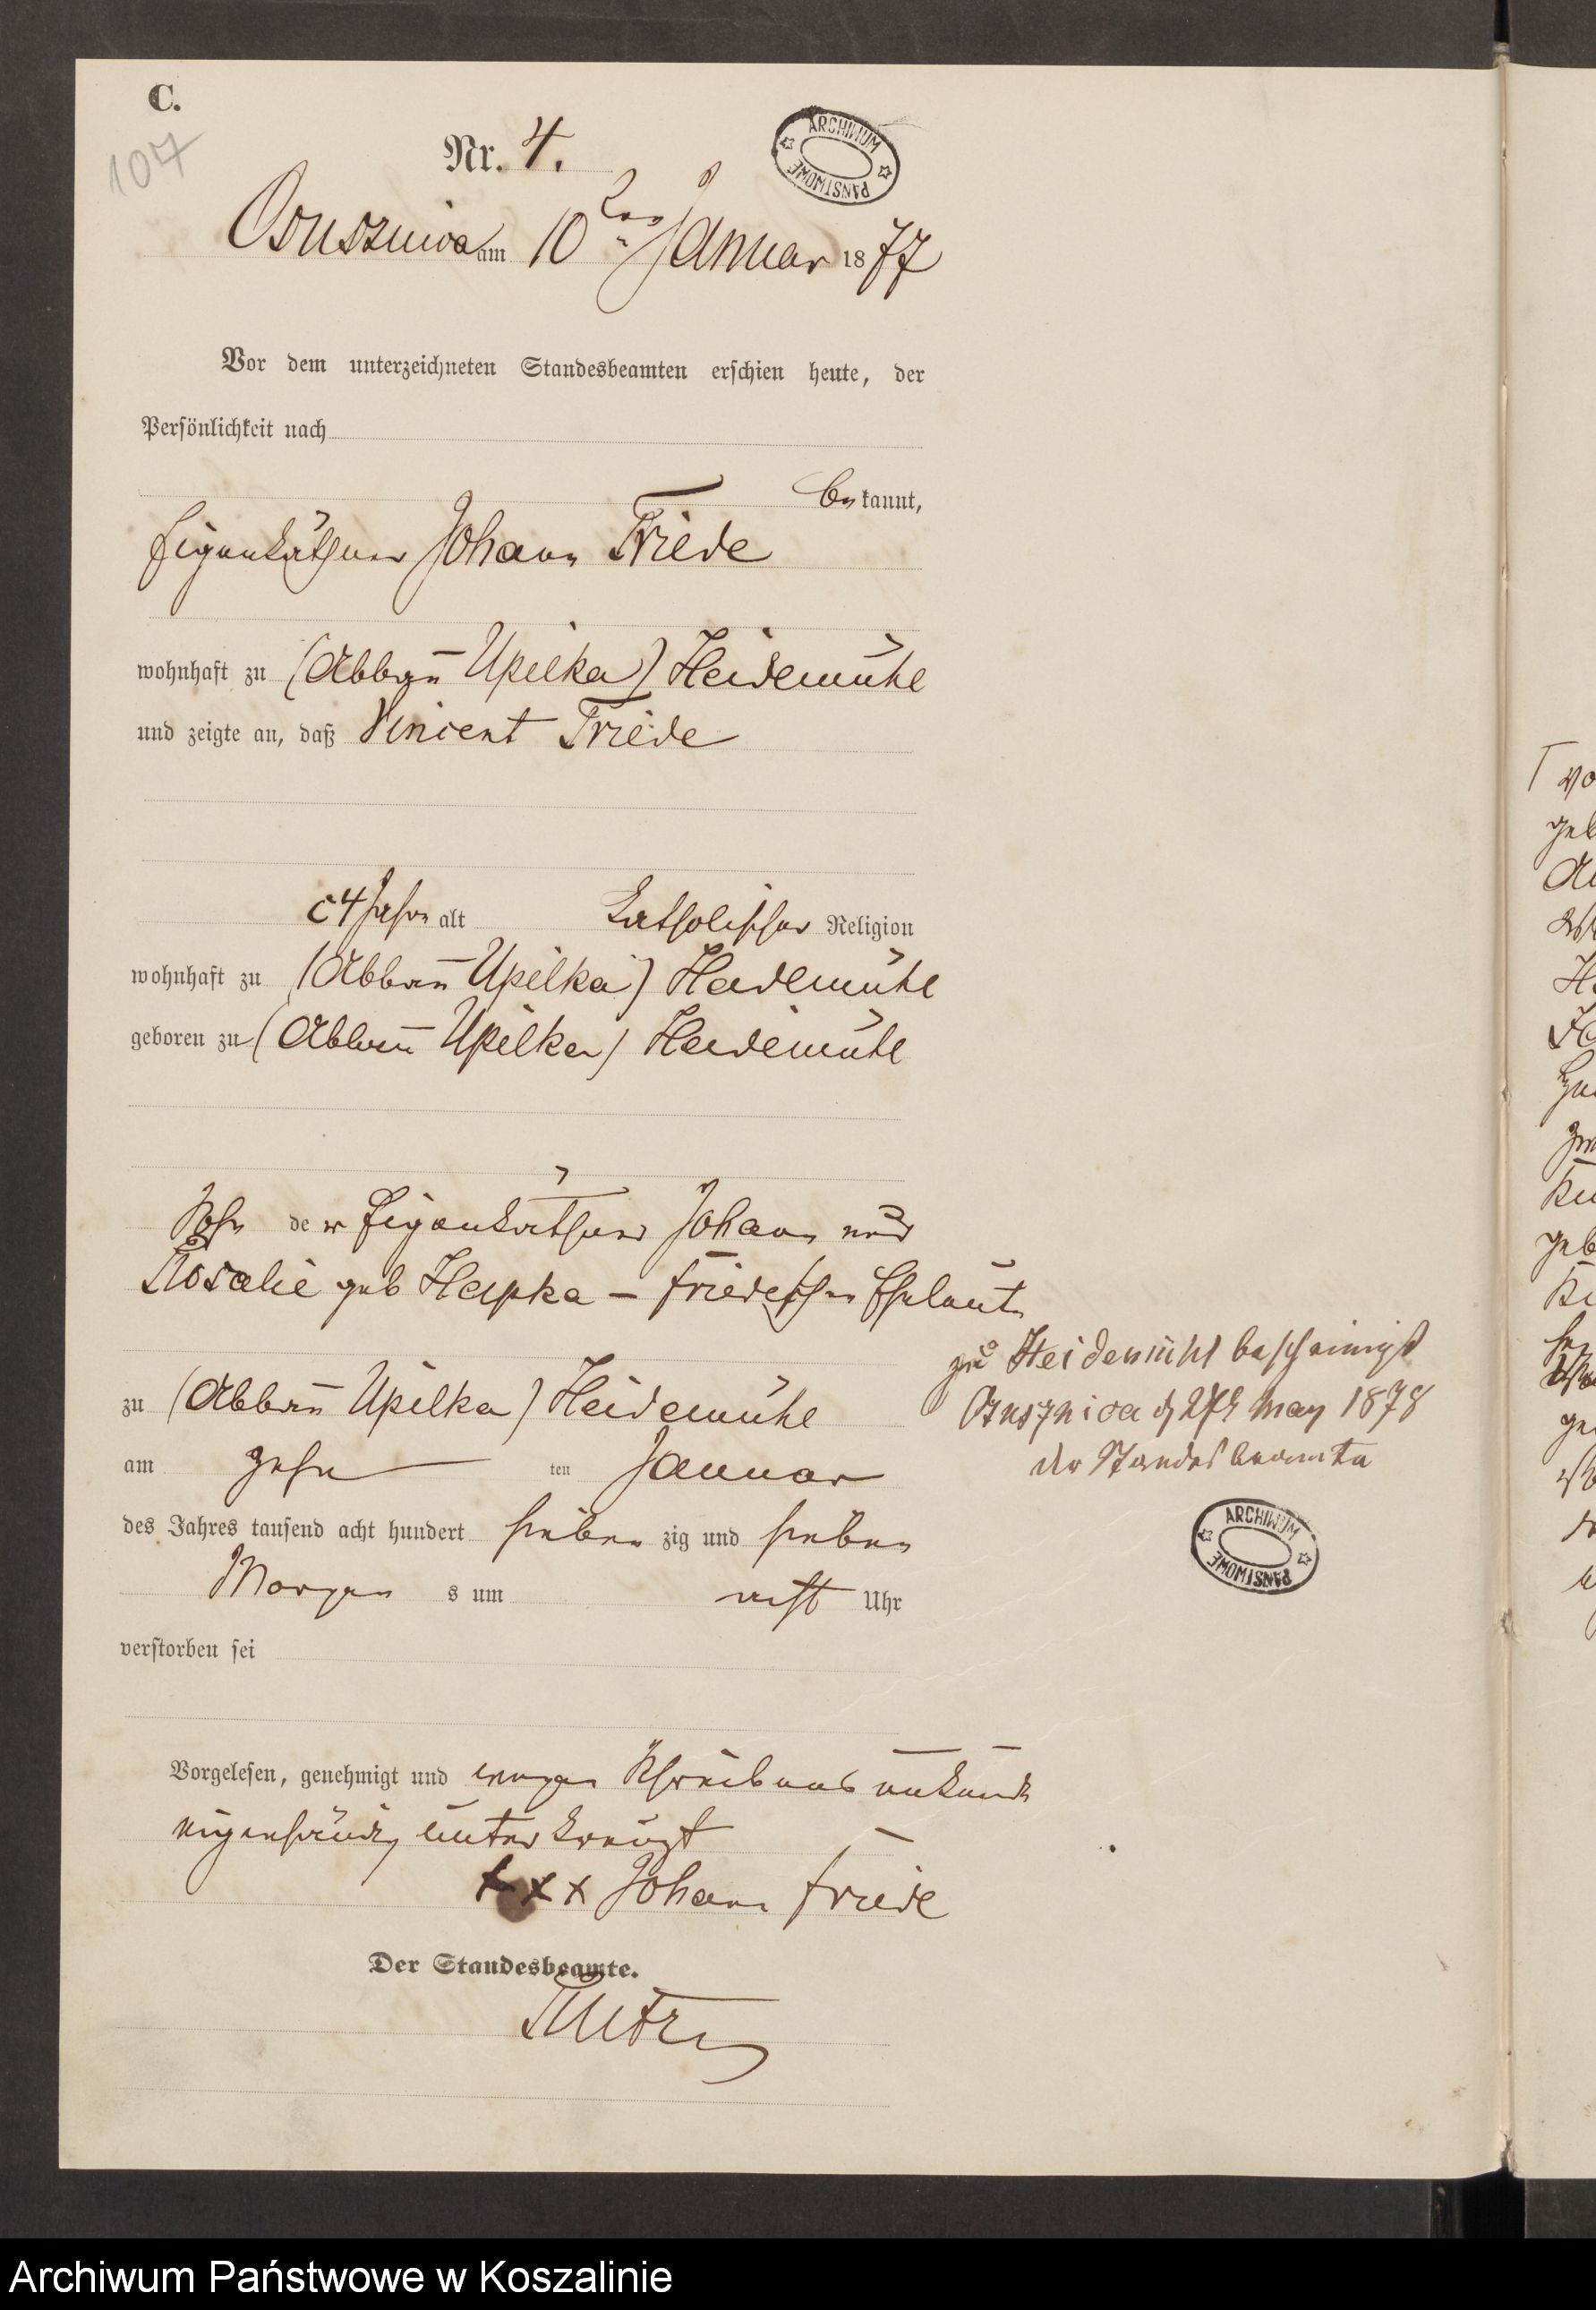 C.
107
Nr. 4.
ARCHIWUM PAŃSTWOWE
Osusznica am 10ten Januar 1877
Vor dem unterzeichneten Standesbeamten erschien heute, der
Persönlichkeit nach
bekannt,
Eigenkäthner Johann Friede
wohnhaft zu (Abbau Upilka) Heidemühe
und zeigte an, daß Vincent Friede
4 Jahre alt katholischer Religion
wohnhaft zu (Abbau Upilka) Heidemühe
geboren zu (Abbau Upilka) Heidemühe
Sohn der Eigenkäthner Johann und
Rosalie geb Hapka – Friedeschen Eheleute
zu (Abbau Upilka) Heidemühe
am zehn ten Januar
des Jahres tausend acht hundert sieben zig und sieben
Morgen s um acht Uhr
verstorben sei
zu Heidemühl bescheinigt
Osusznica d 27t May 1878
der Standesbeamte
ARCHIWUM PAŃSTWOWE
Vorgelesen, genehmigt und wegen Schreibens unkunde
eigenhändig unterkreuzt
xxx Johann Friede
Der Standesbeamte.
Archiwum Państwowe w Koszalinie